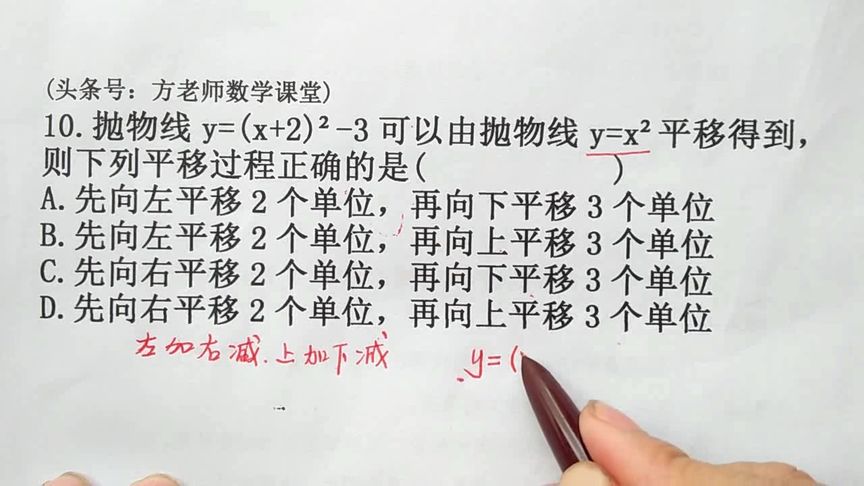 (头条号：方老师数学课堂)
10.抛物线 y=(x+2)²-3 可以由抛物线 y=x² 平移得到，
则下列平移过程正确的是(          )
A.先向左平移 2 个单位，再向下平移 3 个单位
B.先向左平移 2 个单位，再向上平移 3 个单位
C.先向右平移 2 个单位，再向下平移 3 个单位
D.先向右平移 2 个单位，再向上平移 3 个单位
左加右减.上加下减 y=(